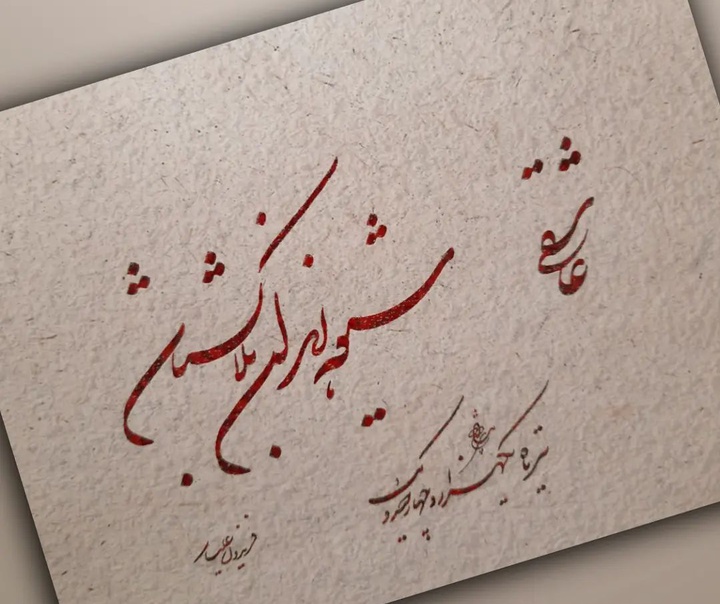 عاشقی
شیوه رندان بلاکش باشد
تیرماه یکهزار و چهارصد و یک
فریدون